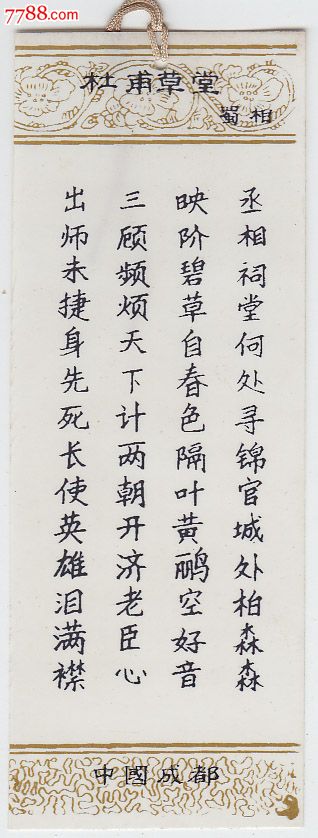 7788.com
杜甫草堂
蜀相
丞相祠堂何处寻锦官城外柏森森
映阶碧草自春色隔叶黄鹂空好音
三顾频烦天下计两朝开济老臣心
出师未捷身先死长使英雄泪满襟
中國成都